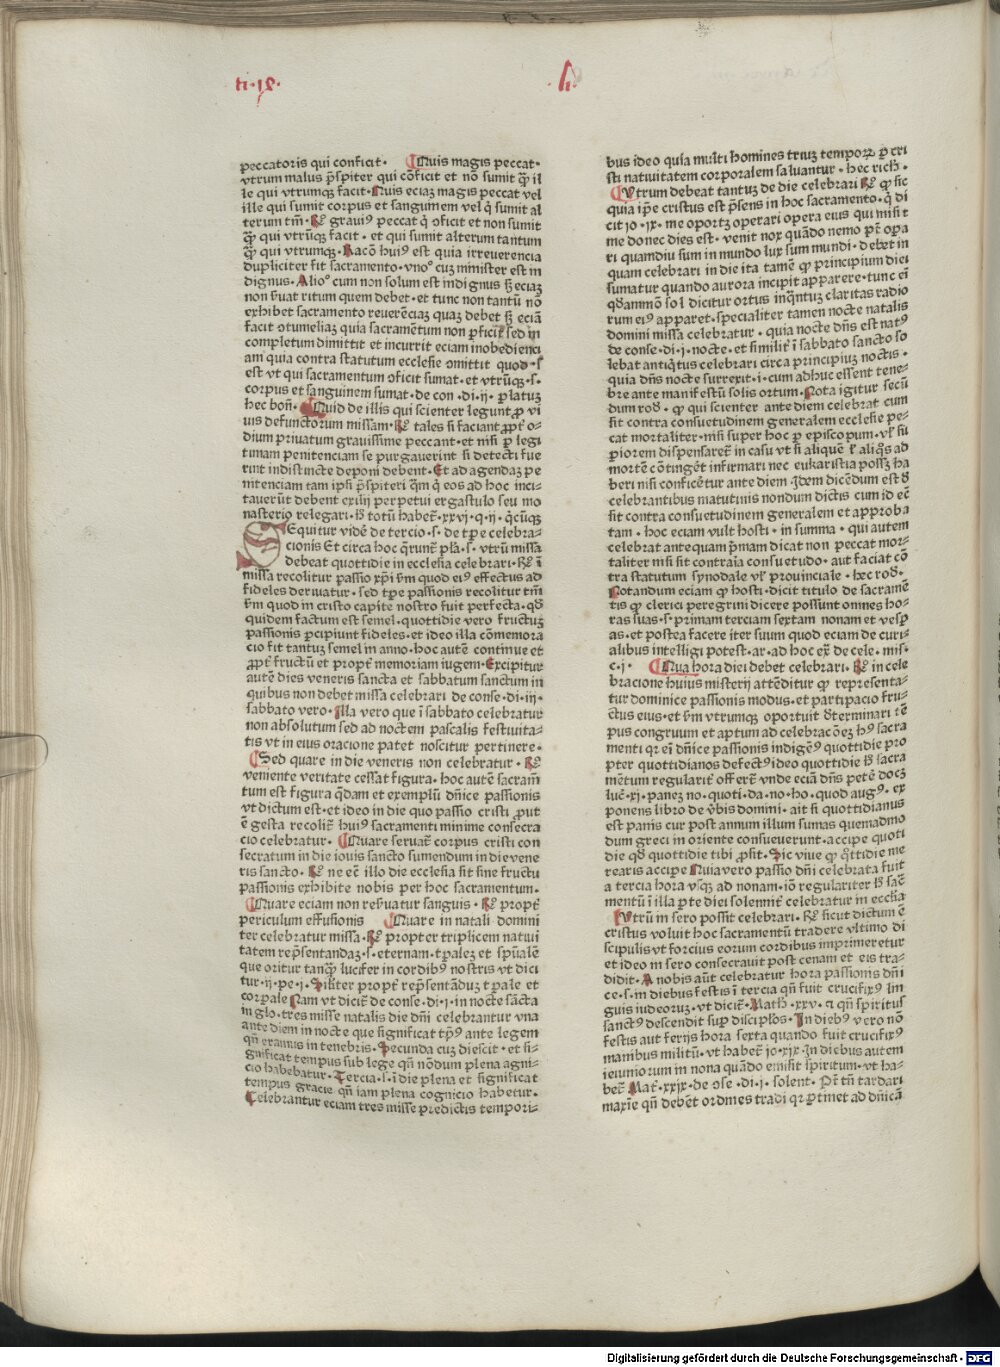 ti·19·
h
peccatoris qui conficit· Quis magis peccat·
vtrum malus p̄sbiter qui cōficit et nō sumit qꝫ il
le qui vtrumqꝫ facit· Quis eciaꝫ magis peccat vel
ille qui sumit corpus et sanguinem vel q̇ sumit al
terum tm̄· Rẽ graviꝰ peccat q̇ ꝯficit et non sumit
qꝫ qui vtrūqꝫ facit· et qui sumit alterum tantum
qꝫ qui vtrumqꝫ· Racō huiꝰ est quia irreuerencia
dupliciter fit sacramento· vnoº cuꝫ minister est in
dignus· Alioº cum non solum est indignus sꝫ eciaꝫ
non ẜuat ritum quem debet· et tunc non tantū nō
exhibet sacramento reuerēciaꝫ quaꝫ debet sꝫ eciā
facit ꝯtumeliaꝫ quia sacramētum non ꝑficit sed in
completum dimittit et incurrit eciam inobedienci
am quia contra statutum ecclesie omittit quod·s·
est vt qui sacramentum ꝯficit sumat· et vtrūqꝫ·s·
corpus et sanguinem sumat· de con·di·ij· ꝑlatuꝫ
hec boñ· Quid de illis qui scienter legunt ꝓ vi
uis defunctorum missam· Rẽ tales si faciant ꝓpt̄ o-
dium priuatum grauissime peccant· et nisi ꝑ legi
timam penitenciam se purgauerint si detecti fue
rint indistincte deponi debent· Et ad agendaꝫ pe
nitenciam tam ipsi p̄spiteri qm̄ q̇ eos ad hoc inci-
tauerūt debent exilij perpetui ergastulo seu mo
nasterio relegari· ħ totū habet̄·xxvj·q·ij· q̄cūqꝫ
Sequitur vidē de tercio·s· de tꝑe celebra-
cionis Et circa hoc q̄runt̄ pl̄a·s· vtrū missa
debeat quottidie in ecclesia celebrari· Rẽ ī
missa recolitur passio xp̄i ẜm quod eiꝰ effectus ad
fideles deriuatur· sed tꝑe passionis recolitur tm̄
ẜm quod in cristo capite nostro fuit perfecta· qđ
quidem factum est semel· quottidie vero fructuꝫ
passionis ꝑcipiunt fideles· et ideo illa cōmemora
cio fit tantuꝫ semel in anno· hoc autē continue et
ꝓpt̄ fructū et propt̄ memoriam iugem· Excipitur
autē dies veneris sancta et sabbatum sanctum in
quibus non debet missa celebrari de conse·di·iij·
sabbato vero· Illa vero que ī sabbato celebratur
non absolutum sed ad noctem pascalis festiuita-
tis vt in eius oracione patet noscitur pertinere·
Sed quare in die veneris non celebratur· Rẽ
veniente veritate cessat figura· hoc autē sacram̄
tum est figura q̄dam et exemplū dn̄ice passionis
vt dictum est· et ideo in die quo passio cristi ꝓut
ē gesta recolit̄ huiꝰ sacramenti minime consecra
cio celebratur· Quare seruat̄ corpus cristi con
secratum in die iouis sancto sumendum in die vene
ris sancto· Rẽ ne eē illo die ecclesia sit sine fructu
passionis exhibite nobis per hoc sacramentum·
Quare eciam non reẜuatur sanguis· Rẽ propt̄
periculum effusionis Quare in natali domini
ter celebratur missa· Rẽ propter triplicem natiui
tatem rep̄sentandaꝫ·s·eternam·tꝑaleꝫ et spūalē
que oritur tanqꝫ lucifer in cordibꝰ nostris vt dici
tur·ij·pe·j· Siliter propt̄ rep̄sentāduꝫ tꝑale et
corꝑale Nam vt dicit̄ de conse·di·j·in nocte sācta
in glo·tres misse natalis die dn̄i celebrantur vna
ante diem in nocte que significat tp̄ꝰ ante legem
qn̄ eramus in tenebris· Secunda cuꝫ diescit· et si-
gnificat tempus sub lege qn̄ nōdum plena agni-
cio habebatur· Tercia·s·ī die plena et significat
tempus gracie qn̄ iam plena cognicio habetur·
Celebrantur eciam tres misse predictis tempori-
bus ideo quia multi homines triuꝫ tempoꝝ ꝑ cri
sti natiuitatem corporalem saluantur· hec rich·
Vtrum debeat tantuꝫ de die celebrari Rẽ ꝙ sic
quia ip̄e cristus est p̄sens in hoc sacramento· q̇ di
cit io·ix· me oportꝫ operari opera eius qui misit
me donec dies est· venit nox quādo nemo pōt opa
ri quamdiu sum in mundo lux sum mundi· debet in
quam celebrari in die ita tamē ꝙ principium diei
sumatur quando aurora incipit apparere· tunc eī
q̄dāmō sol dicitur ortus inq̄ntuꝫ claritas radio
rum eiꝰ apparet· specialiter tamen nocte natalis
domini missa celebratur· quia nocte dn̄s est natꝰ
de conse·di·j·nocte· et similit̄ ī sabbato sancto so
lebat antiq̇tus celebrari circa principiuꝫ noctis·
quia dn̄s nocte surrexit·i·cum adhuc essent tene-
bre ante manifestū solis ortum· Nota igitur secū
dum rođ· ꝙ qui scienter ante diem celebrat cum
sit contra consuetudinem generalem ecclesie pe-
cat mortaliter· nisi super hoc ꝑ episcopum· vꝉ sū
ꝑiorem dispensaret̄ in casu vt si aliquē ꝉ aliq̇s ad
mortē cōtingēt infirmari nec eukaristia possꝫ ha
beri nisi conficētur ante diem· Idem dicēdum est đ
celebrantibus matutinis nondum dictis cum id eē
sit contra consuetudinem generalem et approba
tam· hoc eciam vult hosti· in summa· qui autem
celebrat antequam p̄mam dicat non peccat mor-
taliter nisi sit contraīa consuetudo· aut faciat cō
tra statutum synodale vꝉ prouinciale· hec rođ·
Notandum eciam ꝙ hosti·dicit titulo de sacramē
tis ꝙ clerici peregrini dicere possunt omnes ho-
ras suas·s·primam terciam sextam nonam et vesꝑ
as· et postea facere iter suum quod eciam de curi-
alibus intelligi potest· ar·ad hoc ex̄ de cele·mis·
c·j· Qua hora diei debet celebrari· Rẽ in cele
bracione huius misterij attēditur ꝙ representa-
tur dominice passionis modus· et participacio fru-
ctus eius· et ẜm vtrumqꝫ oportuit đterminari tē
pus congruum et aptum ad celebracōeꝫ hꝰ sacra
menti qꝛ eī dn̄ice passionis indigēꝰ quottidie pro
pter quottidianos defectꝰ ideo quottidie ħ sacra
mētum regularit̄ offerē̄ vnde eciā dn̄s petē docꝫ
luc̄·xj·paneꝫ no·quoti·da·no·ho·quod augꝰ· ex
ponens libro de v̄bis domini· ait si quottidianus
est panis cur post annum illum sumas quemadmo
dum greci in oriente consueuerunt· accipe quoti
die qđ quottidie tibi ꝓsit· Sic viue ꝙ q̊ttidie me
rearis accipe Quia vero passio dn̄i celebrata fuit
a tercia hora vsqꝫ ad nonam· iō regulariter ħ sac̄
mentū ī illa ꝑte diei solennit̄ celebratur in eccl̄ia
Vtrū in sero possit celebrari· Rẽ sicut dictum ē
cristus voluit hoc sacramentū tradere vltimo di
scipulis vt forcius eorum cordibus imprimeretur
et ideo in sero consecrauit post cenam et eis tra-
didit· A nobis aūt celebratur hora passionis dn̄i
ce·s·in diebus festis ī tercia qn̄ fuit crucifixꝰ lin
guis iudeoruꝫ· vt dicit̄· Math·xxv· ⁊ qn̄ spiritus
sanctꝰ descendit suꝑ discipl̄os· In diebꝰ vero nō
festis aut ferijs hora sexta quando fuit crucifixꝰ
manibus militū· vt habet̄ io·xix· In diebus autem
ieiuniorum in nona quādo emisit spiritum· vt ha-
bet̄· Mat̄·xxix·de ꝯse·di·j·solent· Pt̄ tn̄ tardari
maxīe qn̄ debēt ordines tradi qꝛ ꝑtinet ad dn̄icā
Digitalisierung gefördert durch die Deutsche Forschungsgemeinschaft - DFG